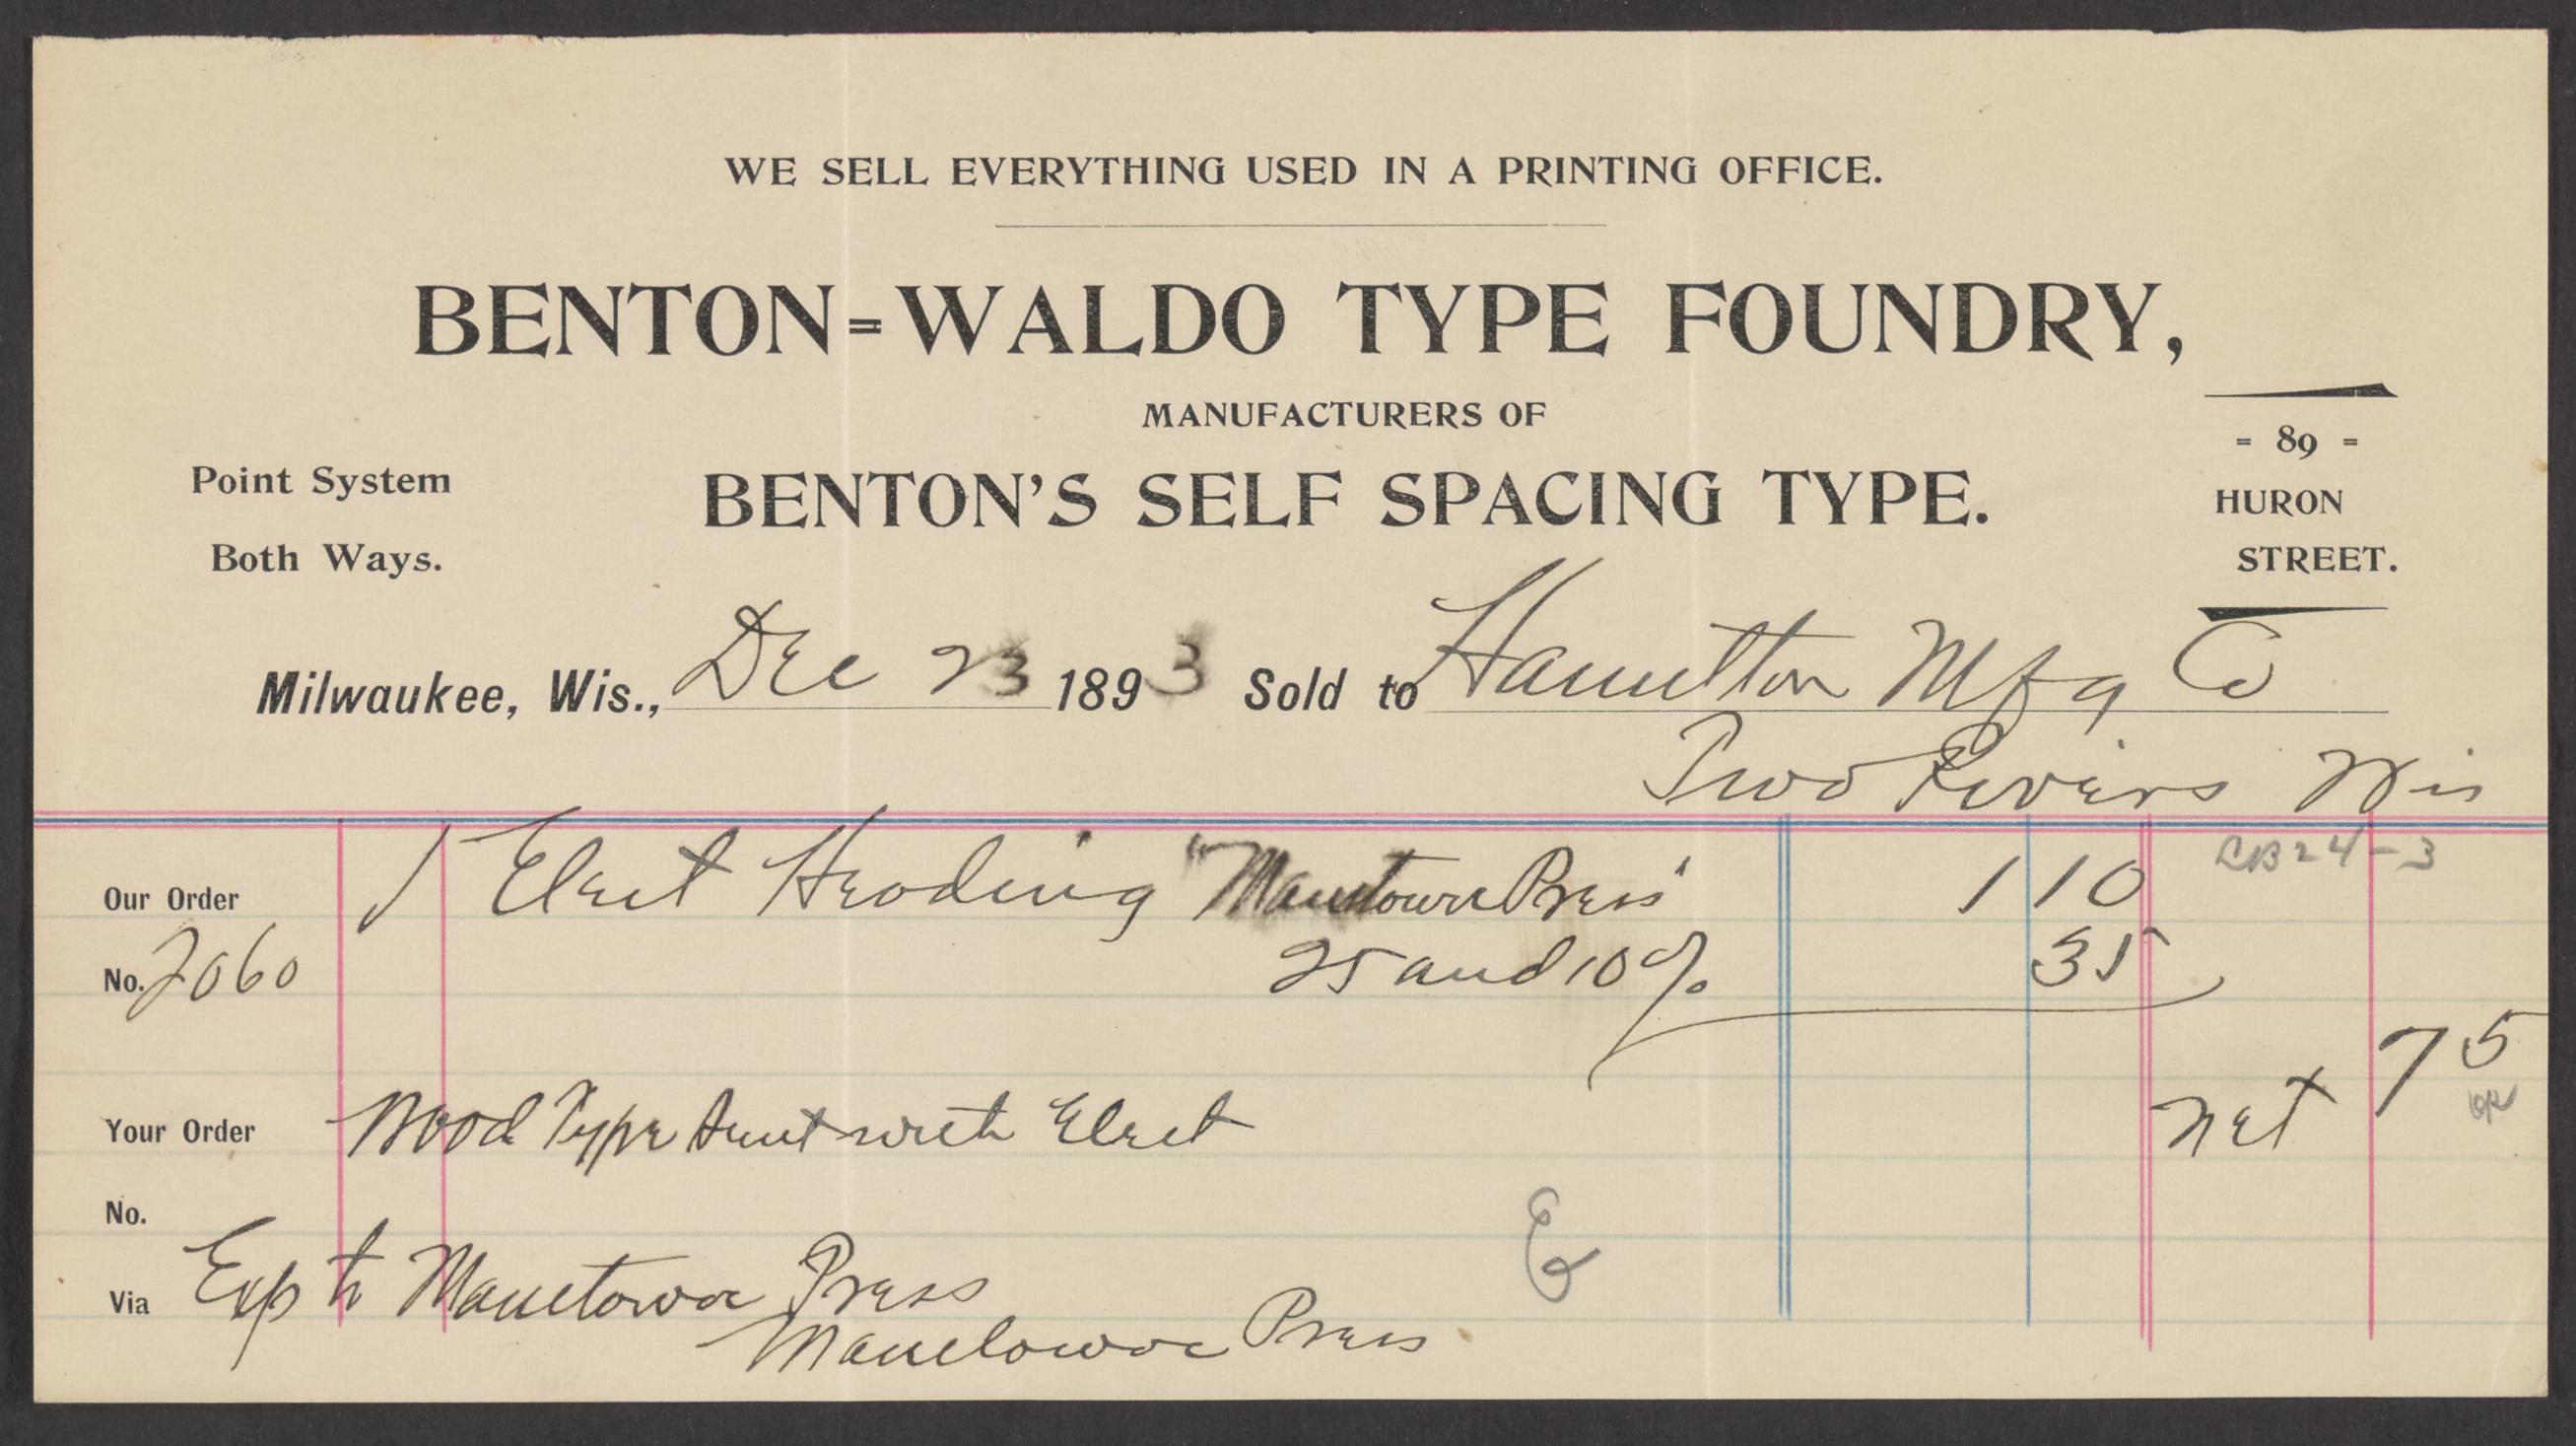 WE SELL EVERYTHING USED IN A PRINTING OFFICE.
BENTON=WALDO TYPE FOUNDRY,
MANUFACTURERS OF
BENTON'S SELF SPACING TYPE.
Point System
Both Ways.
- 89 -
HURON
STREET.
Milwaukee, Wis., Dec 23 1893 Sold to Hamilton Mfg Co
Two Rivers Wis
Our Order 1 Elect Heading "Manitowoc Press" 1 10
CB24-3
No. 2060 25 and 10% 35
75
Your Order Wood Type sent with Elect net
No.
Via Exp to Manitowoc Press
Manitowoc Press